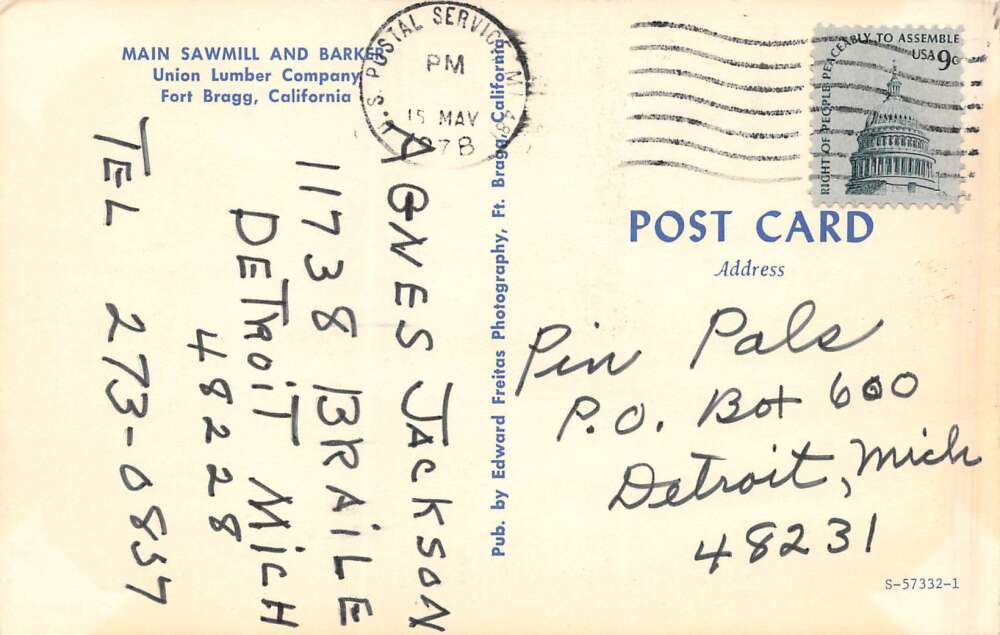 MAIN SAWMILL AND BARKER
Union Lumber Company
Fort Bragg, California
U.S. POSTAL SERVICE MI
PM
15 MAY
1978
RIGHT OF PEOPLE PEACEABLY TO ASSEMBLE
USA 9c
POST CARD
Address
Pin Pals
P.O. Box 600
Detroit, Mich
48231
AGNES JACKSON
11738 BRAILE
DETROIT MICH
48228
TEL 273-0857
Pub. by Edward Freitas Photography, Ft. Bragg, California
S-57332-1